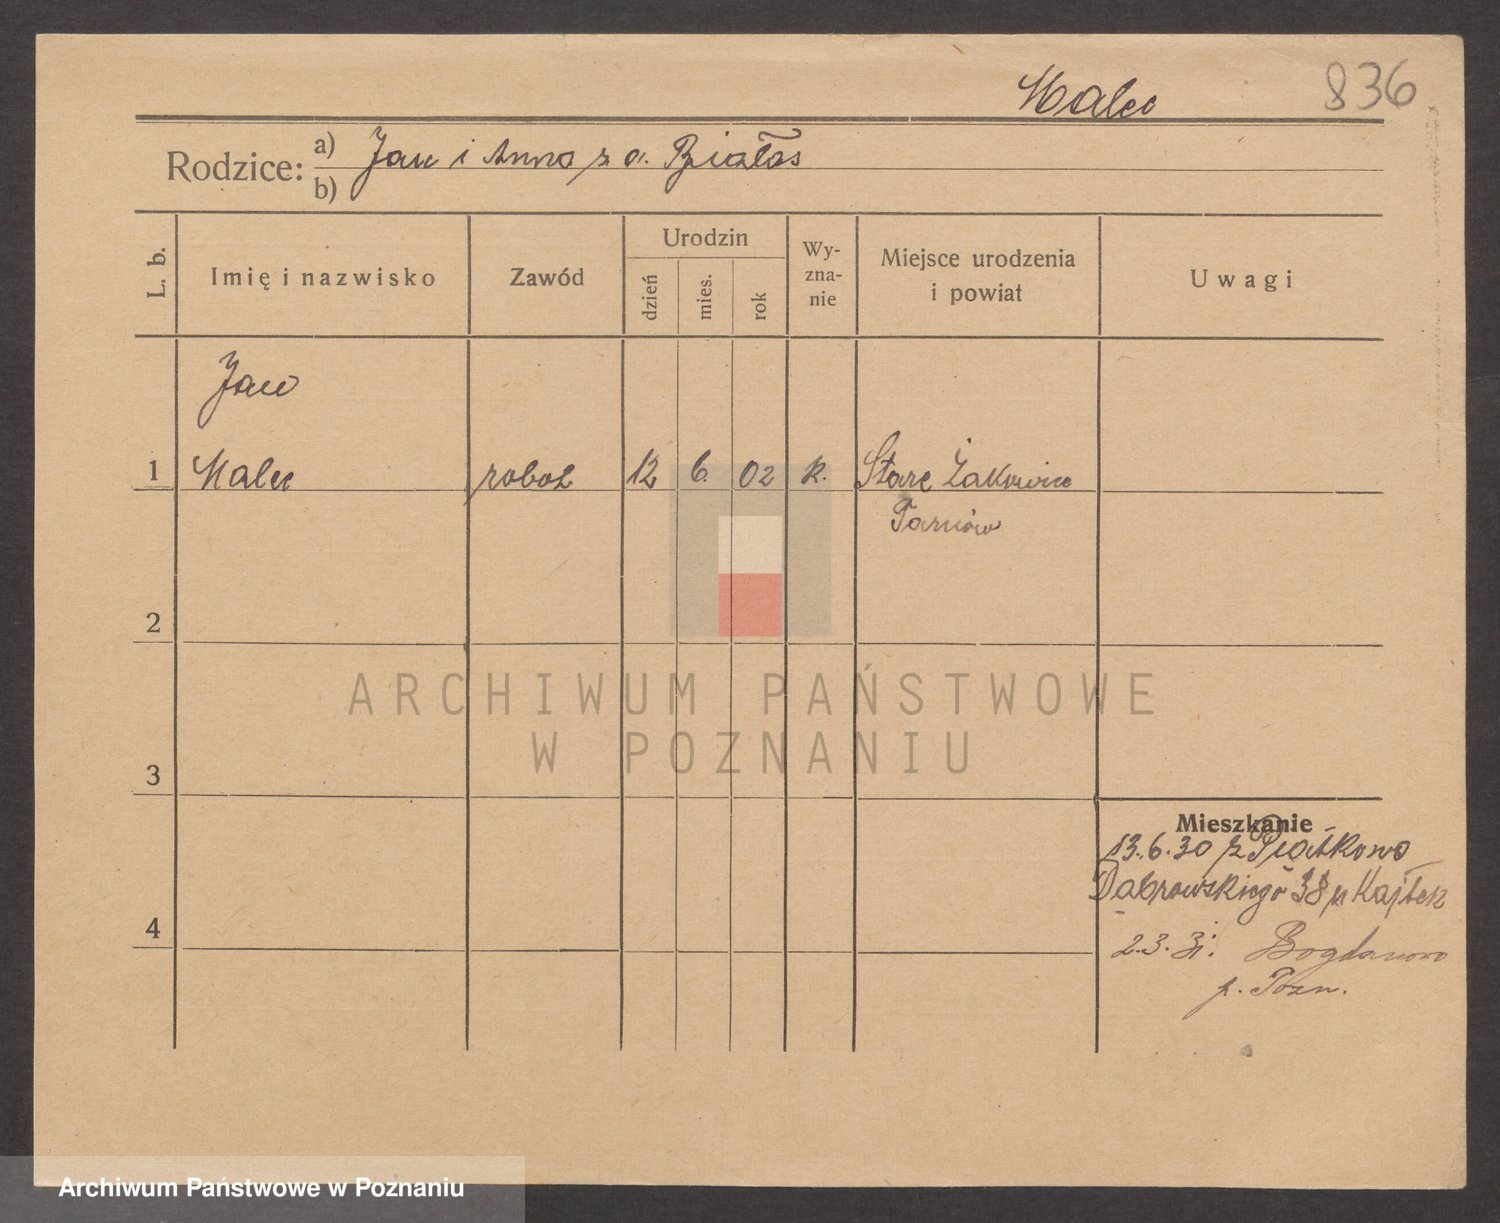 Malec 836
Rodzice: a) Jan i Anna z d. Białas
b)
L. b. Imię i nazwisko Zawód Urodzin dzień mies. rok Wy-zna-nie Miejsce urodzenia i powiat Uwagi
Jan
1 Malec robot 12 6. 02 k. Stare Żakowice
Tarnów
2
ARCHIWUM PAŃSTWOWE
W POZNANIU
3
Mieszkanie
13.6.30 z Piątkowo
Dąbrowskiego 38 u Kajtek
4
2.3.31. Bogdanowo
p. Pozn.
Archiwum Państwowe w Poznaniu